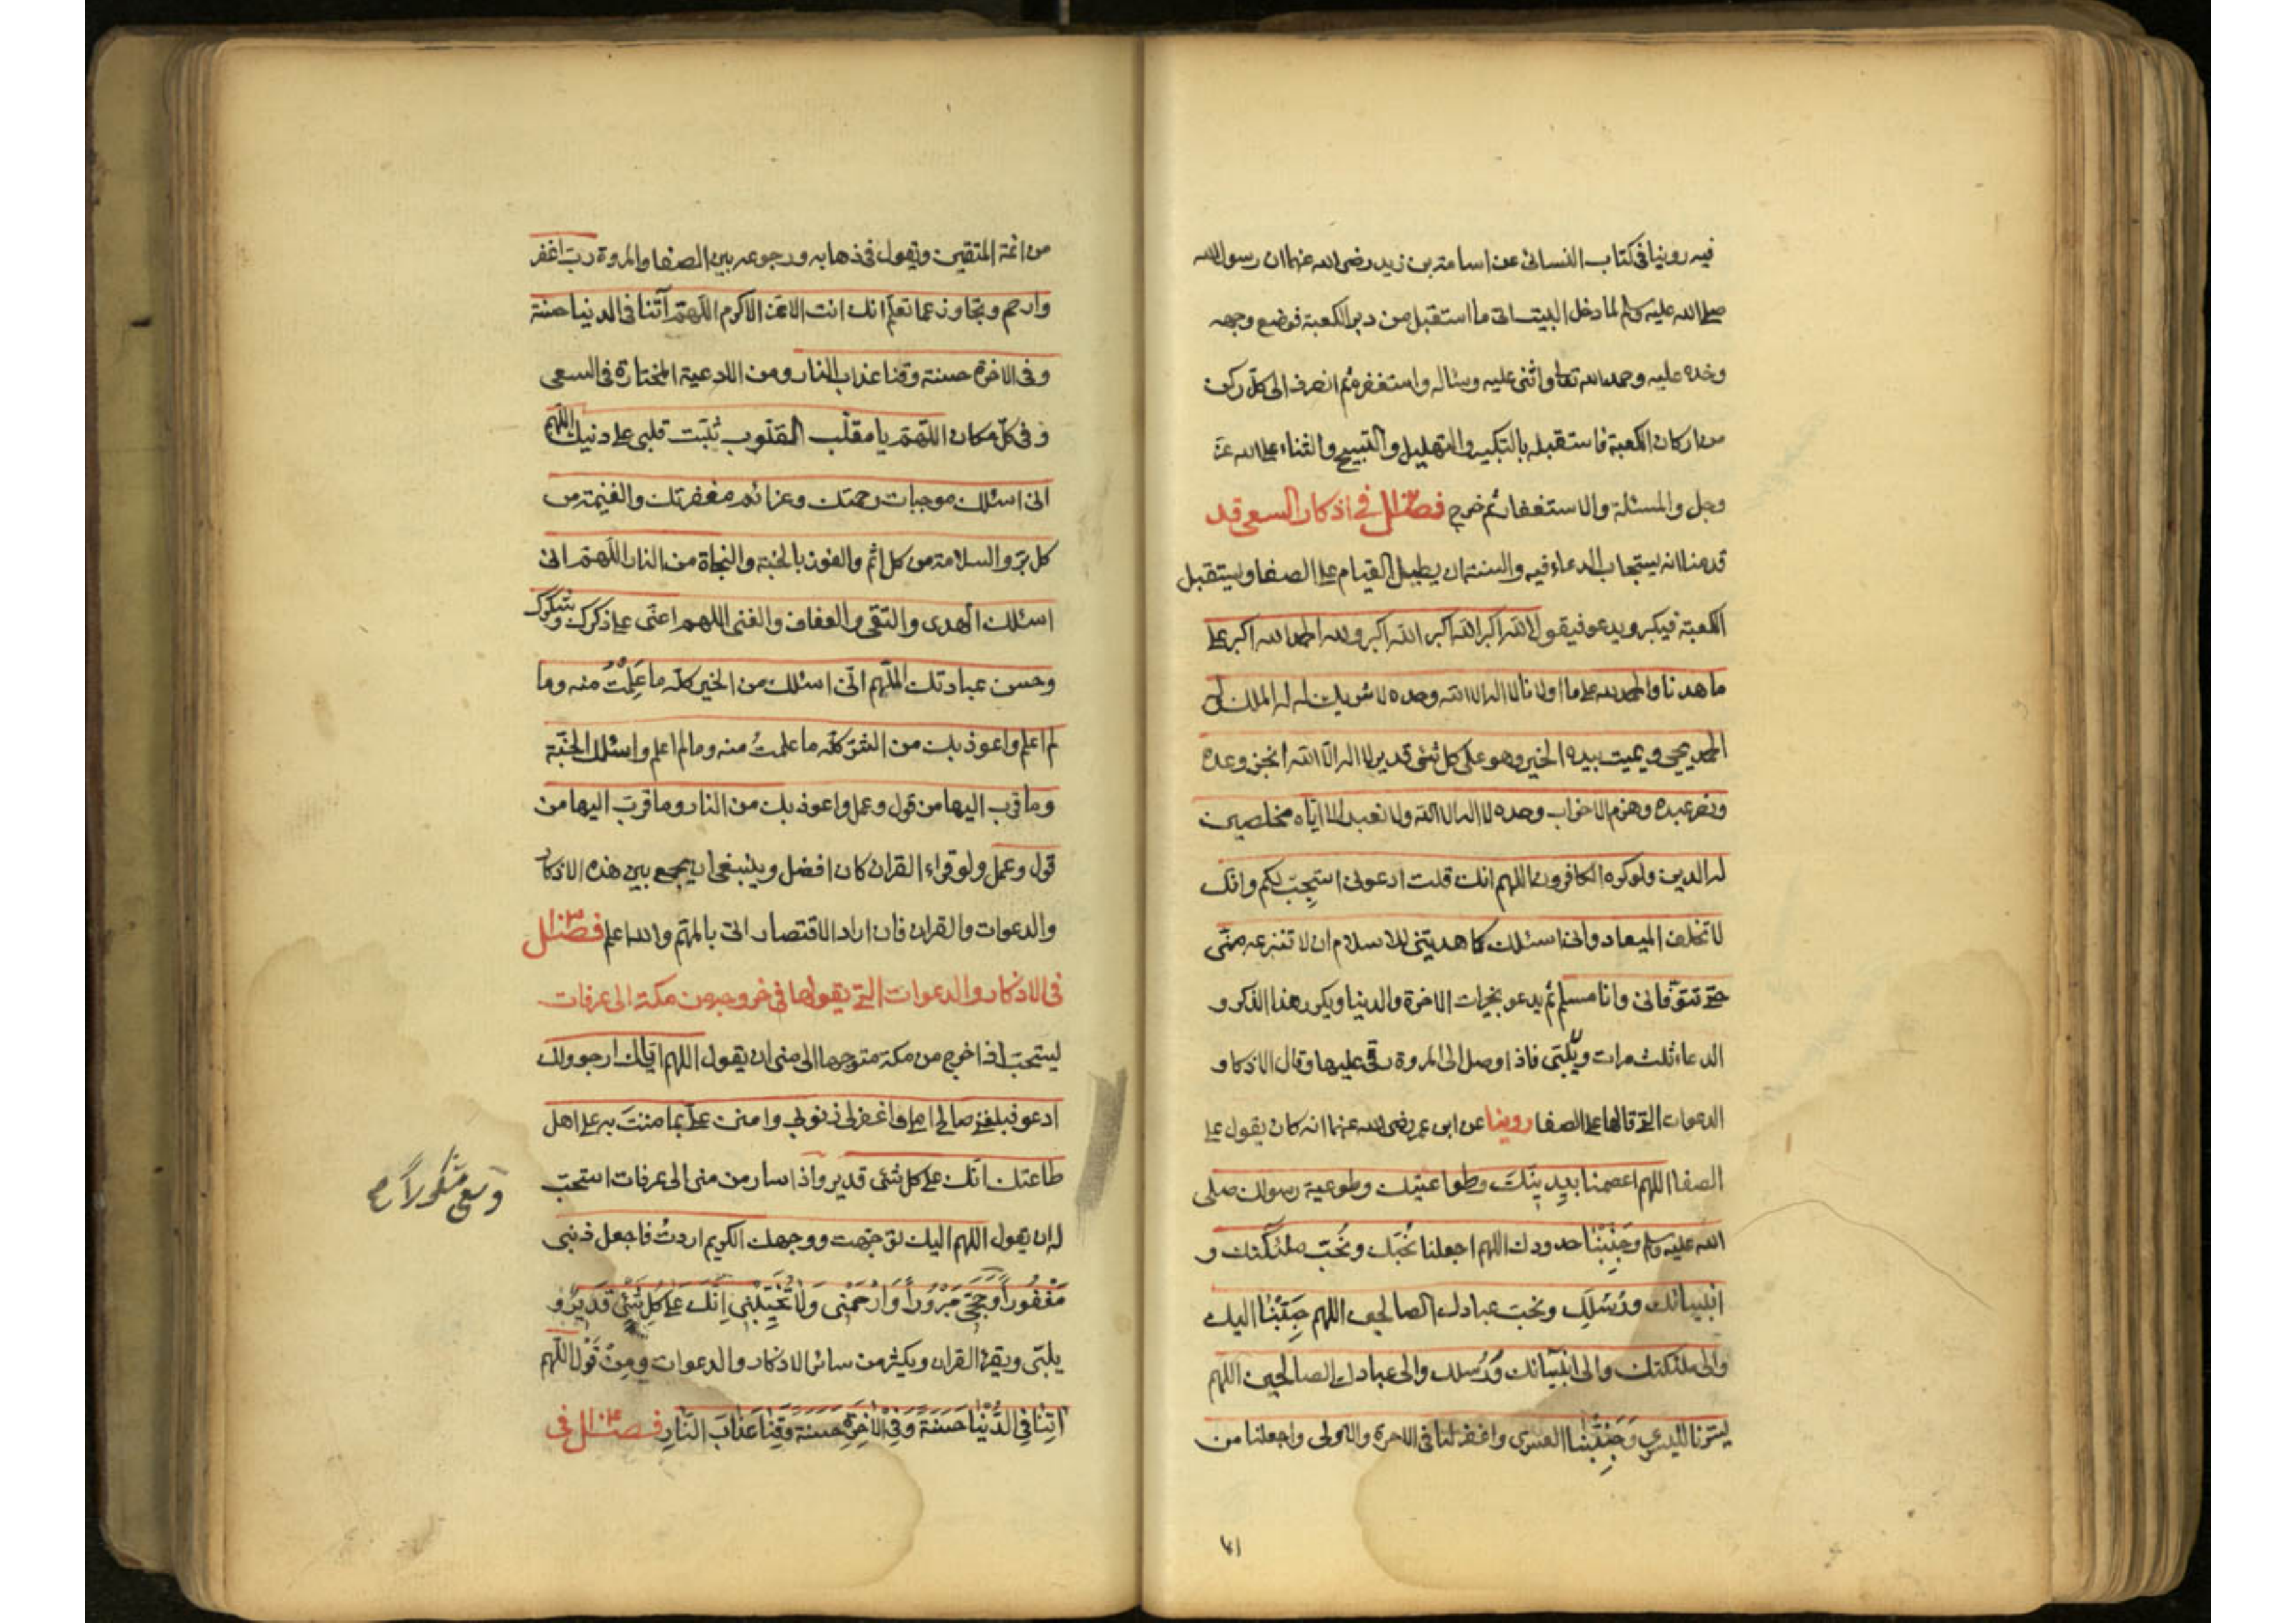 فيه روينا في كتاب النسائى عن اسامة بن زيد رضى الله عنهما ان رسول الله
صلى الله عليه وسلم لما دخل البيت اتى ما استقبل من دبر الكعبة فوضع وجهه
وخده عليه وحمد الله تعالى واثنى عليه وسئاله واستغفره ثم انصرف الى كل ركن
من اركان الكعبة فاستقبله بالتكبير والتهليل والتسبيح والثناء على الله عز
وجل والمسئلة والاستغفار ثم خرج فصل في اذكار السعى قد
قدمنا انه يستجاب الدعاء فيه والسنة ان يطيل القيام على الصفا ويستقبل
الكعبة فيكبر ويدعو فيقول الله اكبر الله اكبر الله اكبر ولله الحمد الله اكبر على
ما هدنا والحمد لله على ما اولانا لا اله الا الله وحده لا شريك له له الملك وله
الحمد يحيى ويميت بيده الخير وهو على كل شئ قدير لا اله الا الله انجز وعده
ونصر عبده وهزم الاحزاب وحده لا اله الا الله ولا نعبد الا اياه مخلصين
له الدين ولو كره الكافرون اللهم انك قلت ادعونى استجب لكم وانك
لا تخلف الميعاد وانى اسئلك كما هديتنى للاسلام ان لا تنزعه منى
حتى تتوفانى وانا مسلم ثم يدعو بخيرات الاخرة والدنيا ويكرر هذا الذكر و
الدعاء ثلث مرات ويلبى فاذا وصل الى المروة رقى عليها وقال الاذكار و
الدعوات التى قالها على الصفا روينا عن ابن عمر رضى الله عنهما انه كان يقول على
الصفا اللهم اعصمنا بدينك وطواعيتك وطوعية رسولك صلى
الله عليه وسلم وجنبنا حدودك اللهم اجعلنا نحبك ونحب ملئكتك و
انبيائك ورسلك ونحب عبادك الصالحين اللهم حببنا اليك
والى ملئكتك والى انبيائك ورسلك والى عبادك الصالحين اللهم
يسرنا لليسرى وجنبنا العسرى واغفر لنا فى الاخرة والاولى واجعلنا من
ائمة المتقين ويقول فى ذهابه ورجوعه بين الصفا والمروة رب اغفر
وارحم وتجاوز عما تعلم انك انت الاعز الاكرم اللهم آتنا فى الدنيا حسنة
وفى الاخرة حسنة وقنا عذاب النار ومن الادعية المختارة فى السعى
وفى كل مكان اللهم يا مقلب القلوب ثبت قلبى على دينك اللهم
انى اسئلك موجبات رحمتك وعزائم مغفرتك والغنيمة من
كل بر والسلامة من كل اثم والفوز بالجنة والنجاة من النار اللهم انى
اسئلك الهدى والتقى والعفاف والغنى اللهم اعنى على ذكرك وشكرك
وحسن عبادتك اللهم انى اسئلك من الخير كله ما علمت منه وما
لم اعلم واعوذ بك من الشر كله ما علمت منه وما لم اعلم واسئلك الجنة
وما قرب اليها من قول وعمل واعوذ بك من النار وما قرب اليها من
قول وعمل ولو قراء القران كان افضل وينبغى ان يجمع بين هذه الاذكار
والدعوات والقران فان اراد الاقتصار اتى بالمهم والله اعلم فصل
فى الاذكار والدعوات التى يقولها فى خروجه من مكة الى عرفات
يستحب اذا خرج من مكة متوجها الى منى ان يقول اللهم اياك ارجو ولك
ادعو فبلغنى صالح املى واغفر لى ذنوبى وامنن على بما مننت به على اهل
طاعتك انك على كل شئى قدير واذا سار من منى الى عرفات استحب
له ان يقول اللهم اليك توجهت ووجهك الكريم اردت فاجعل ذنبى
مَغْفُوراً وَحَجِّى مَبْرُوراً وَارْحَمْنِى وَلَا تُخَيِّبْنِى اِنَّكَ عَلَى كُلِّ شَئٍ قَدِيرٌ و
يلبى ويقرء القران ويكثر من سائر الاذكار والدعوات ومِنْ قَوْلِ اللهم
اتِنَا فِى الدُّنْيَا حَسَنَةً وَفِى الْآخِرَةِ حسنة وَقِنَا عَذَابَ النَّارِ فصل فى
وسعى مشكوراً صح